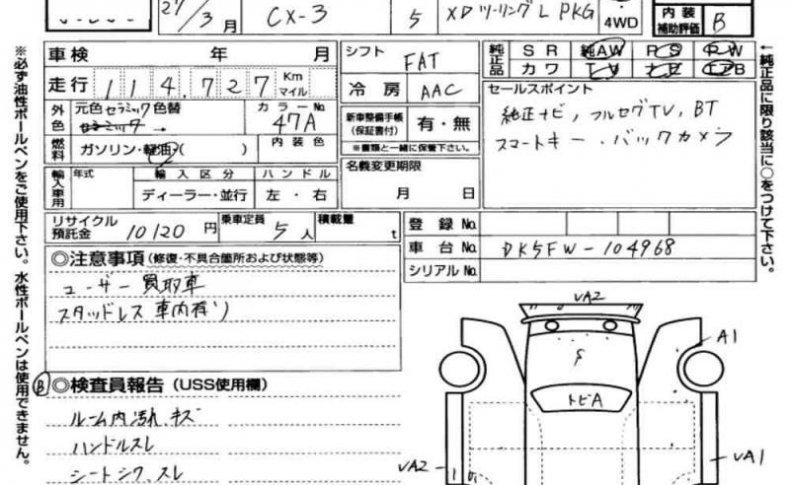 27/3月 CX-3 5 XDツーリングL PKG 4WD 内装補助評価 B
※必ず油性ボールペンをご使用下さい。水性ボールペンは使用できません。
車検 年 月
走行 114,727 Km マイル
外色 元色セラミック色替
セラミック→
カラーNo. 47A
燃料 ガソリン・軽油・( ) 内装色
輸入車用 年式 輸入区分 ハンドル
ディーラー・並行 左・右
リサイクル預託金 10120円 乗車定員 5人 積載量 t
シフト FAT
冷房 AAC
新車整備手帳(保証書付) 有・無
※書類と一緒に保管下さい。
名義変更期限
月 日
純正品 SR 純AW PS PW
カワ TV ナビ エアB
セールスポイント
純正ナビ, フルセグTV, BT
スマートキー . バックカメラ
←純正品に限り該当に○をつけて下さい。
登録No.
車台No. DK5FW-104968
シリアルNo.
◎注意事項 (修復・不具合箇所および状態等)
ユーザー買取車
スタッドレス車内有り
B ◎検査員報告 (USS使用欄)
ルーム内汚れ、キズ
ハンドルスレ
シートシワ、スレ
VA2
A1
トビA
VA2
VA1